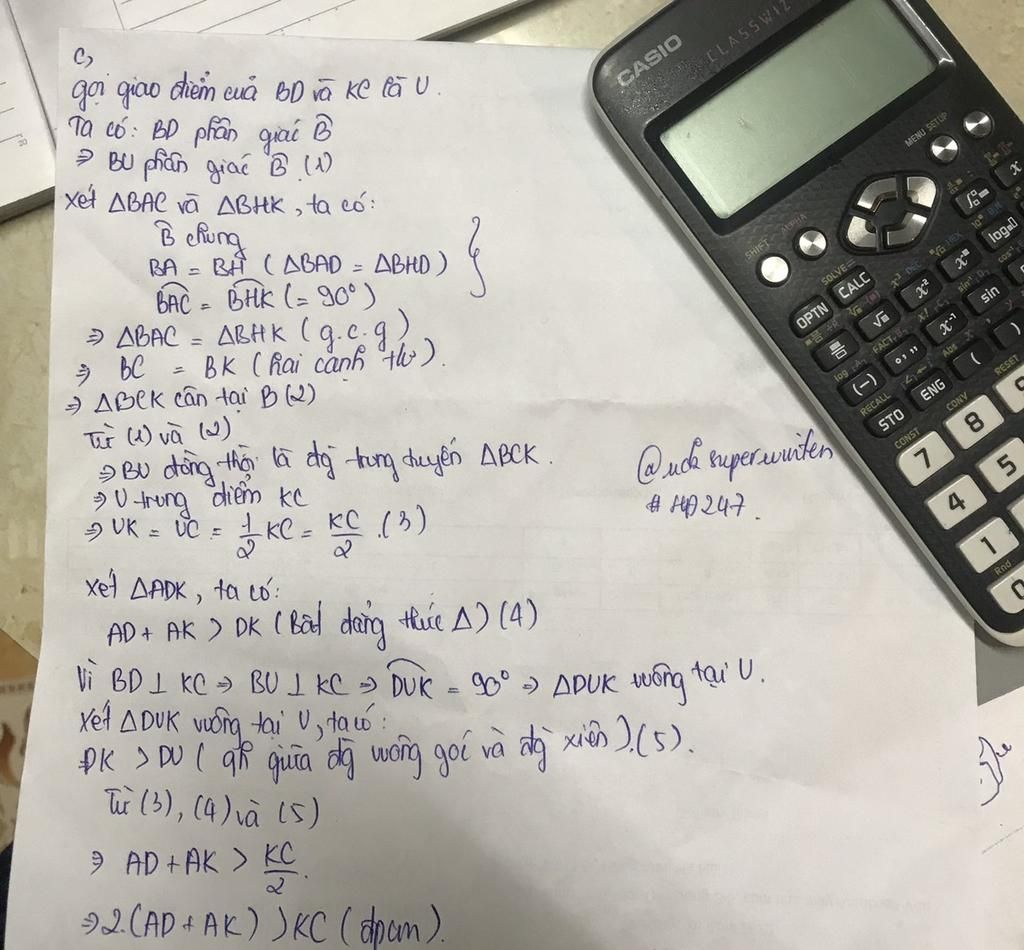 c,
gọi giao điểm của BD và KC là U.
Ta có: BD phân giác B̂
⇒ BU phân giác B̂ (1)
xét ΔBAC và ΔBHK, ta có:
B̂ chung
BA = BH (ΔBAD = ΔBHD)
BAC = BHK (= 90°)
⇒ ΔBAC = ΔBHK (g.c.g)
⇒ BC = BK (hai cạnh tư).
⇒ ΔBCK cân tại B (2)
Từ (1) và (2)
⇒ BU đồng thời là đg trung tuyến ΔBCK.
⇒ U trung điểm KC
⇒ UK = UC = 1/2 KC = KC/2 .(3)
xét ΔADK, ta có:
AD + AK > DK (Bất đẳng thức Δ) (4)
Vì BD ⊥ KC ⇒ BU ⊥ KC ⇒ DUK = 90° ⇒ ΔDUK vuông tại U.
Xét ΔDUK vuông tại U, ta có:
DK > DU (qh giữa đg vuông góc và đg xiên).(5).
Từ (3), (4) và (5)
⇒ AD + AK > KC/2.
⇒ 2.(AD + AK) > KC (đpcm).
#HD247.
CASIO
CLASSWIZ
MENU SETUP
SHIFT
ALPHA
OPTN
CALC
SOLVE
sin
FACT
Abs
(
)
RECALL
STO
ENG
CONST
CONV
RESET
7
8
4
5
1
Rnd
0